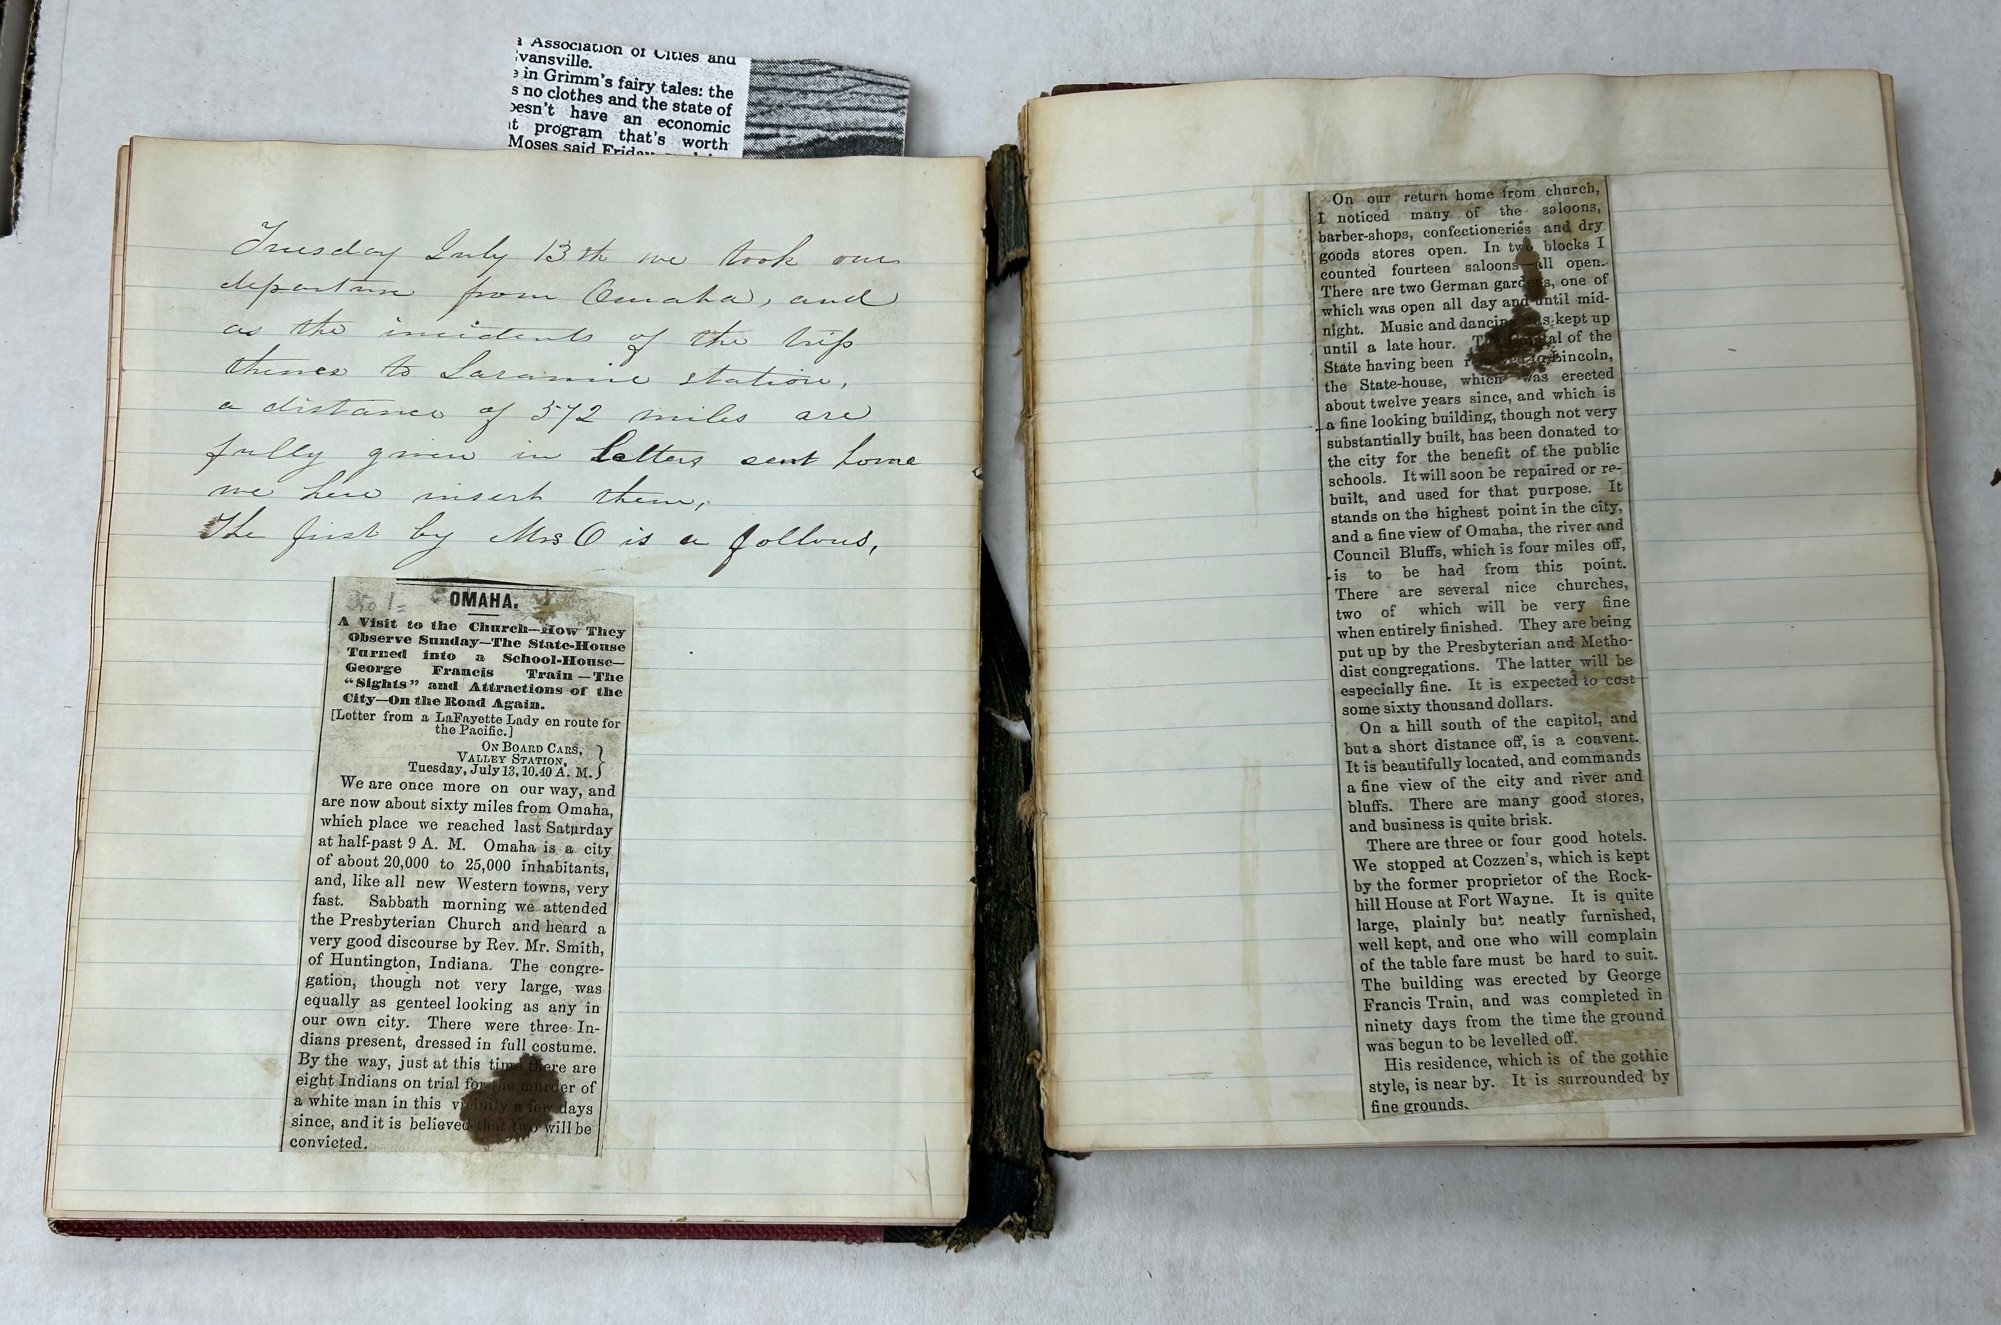 Association of Cities and
vansville.
in Grimm's fairy tales: the
s no clothes and the state of
esn't have an economic
t program that's worth
Moses said Friday
Tuesday July 13th we took our
departure from Omaha, and
as the incidents of the trip
thence to Laramie station,
a distance of 572 miles are
fully given in letters sent home
we here insert them,
The first by Mrs O is a follows,
No 1=
OMAHA.
A Visit to the Church—How They
Observe Sunday—The State-House
Turned into a School-House—
George Francis Train—The
"Sights" and Attractions of the
City—On the Road Again.
[Letter from a LaFayette Lady en route for
the Pacific.]
ON BOARD CARS,
VALLEY STATION,
Tuesday, July 13, 10.40 A. M.
We are once more on our way, and
are now about sixty miles from Omaha,
which place we reached last Saturday
at half-past 9 A. M. Omaha is a city
of about 20,000 to 25,000 inhabitants,
and, like all new Western towns, very
fast. Sabbath morning we attended
the Presbyterian Church and heard a
very good discourse by Rev. Mr. Smith,
of Huntington, Indiana. The congre-
gation, though not very large, was
equally as genteel looking as any in
our own city. There were three In-
dians present, dressed in full costume.
By the way, just at this time there are
eight Indians on trial for the murder of
a white man in this vicinity a few days
since, and it is believed that two will be
convicted.
On our return home from church,
I noticed many of the saloons,
barber-shops, confectioneries and dry
goods stores open. In two blocks I
counted fourteen saloons—all open.
There are two German gardens, one of
which was open all day and until mid-
night. Music and dancing was kept up
until a late hour. The Capital of the
State having been removed to Lincoln,
the State-house, which was erected
about twelve years since, and which is
a fine looking building, though not very
substantially built, has been donated to
the city for the benefit of the public
schools. It will soon be repaired or re-
built, and used for that purpose. It
stands on the highest point in the city,
and a fine view of Omaha, the river and
Council Bluffs, which is four miles off,
is to be had from this point.
There are several nice churches,
two of which will be very fine
when entirely finished. They are being
put up by the Presbyterian and Metho-
dist congregations. The latter will be
especially fine. It is expected to cost
some sixty thousand dollars.
On a hill south of the capitol, and
but a short distance off, is a convent.
It is beautifully located, and commands
a fine view of the city and river and
bluffs. There are many good stores,
and business is quite brisk.
There are three or four good hotels.
We stopped at Cozzen's, which is kept
by the former proprietor of the Rock-
hill House at Fort Wayne. It is quite
large, plainly but neatly furnished,
well kept, and one who will complain
of the table fare must be hard to suit.
The building was erected by George
Francis Train, and was completed in
ninety days from the time the ground
was begun to be levelled off.
His residence, which is of the gothic
style, is near by. It is surrounded by
fine grounds.